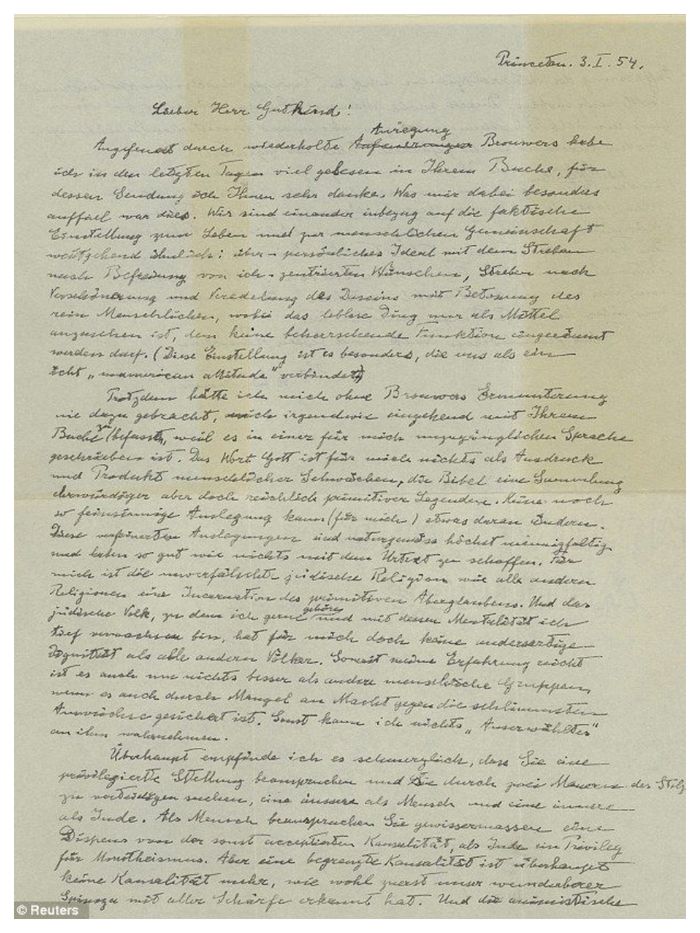 Princeton. 3. I. 54.
Lieber Herr Gutkind!
Anregung
Angefeuert durch wiederholte Brouwers habe
ich in den letzten Tagen viel gelesen in Ihrem Buche, für
dessen Sendung ich Ihnen sehr danke. Was mir dabei besonders
auffiel war dies. Wir sind einander inbezug auf die faktische
Einstellung zum Leben und zur menschlichen Gemeinschaft
weitgehend ähnlich: über-persönliches Ideal mit dem Streben
nach Befreiung von ich-zentrierten Wünschen, Streben nach
Verschönerung und Veredelung des Daseins mit Betonung des
rein Menschlichen, wobei das leblose Ding nur als Mittel
anzusehen ist, dem keine beherrschende Funktion eingeräumt
werden darf. (Diese Einstellung ist es besonders, die uns als ein
echt „unamerican attitude" verbindet)
Trotzdem hätte ich mich ohne Brouwers Ermunterung
nie dazu gebracht, mich irgendwie eingehend mit Ihrem
Buche zu befassen, weil es in einer für mich unzugänglichen Sprache
geschrieben ist. Das Wort Gott ist für mich nichts als Ausdruck
und Produkt menschlicher Schwächen, die Bibel eine Sammlung
ehrwürdiger aber doch reichlich primitiver Legenden. Keine noch
so feinsinnige Auslegung kann (für mich) etwas daran ändern.
Diese verfeinerten Auslegungen sind naturgemäss höchst mannigfaltig
und haben so gut wie nichts mit dem Urtext zu schaffen. Für
mich ist die unverfälschte jüdische Religion wie alle anderen
Religionen eine Incarnation des primitiven Aberglaubens. Und das
jüdische Volk, zu dem ich gerne gehöre und mit dessen Mentalität ich
tief verwachsen bin, hat für mich doch keine andersartige
Dignität als alle anderen Völker. Soweit meine Erfahrung reicht
ist es auch um nichts besser als andere menschliche Gruppen,
wenn es auch durch Mangel an Macht gegen die schlimmsten
Auswüchse gesichert ist. Sonst kann ich nichts „Auserwähltes"
an ihm wahrnehmen.
Überhaupt empfinde ich es schmerzlich, dass Sie eine
privilegierte Stellung beanspruchen und Sie durch zwei Mauern des Stolzes
zu verteidigen suchen, eine äussere als Mensch und eine innere
als Jude. Als Mensch beanspruchen Sie gewissermassen einen
Dispens von der sonst acceptierten Kausalität, als Jude ein Privileg
für Monotheismus. Aber eine begrenzte Kausalität ist überhaupt
keine Kausalität mehr, wie wohl zuerst unser wunderbarer
Spinoza mit aller Schärfe erkannt hat. Und die animistische
© Reuters